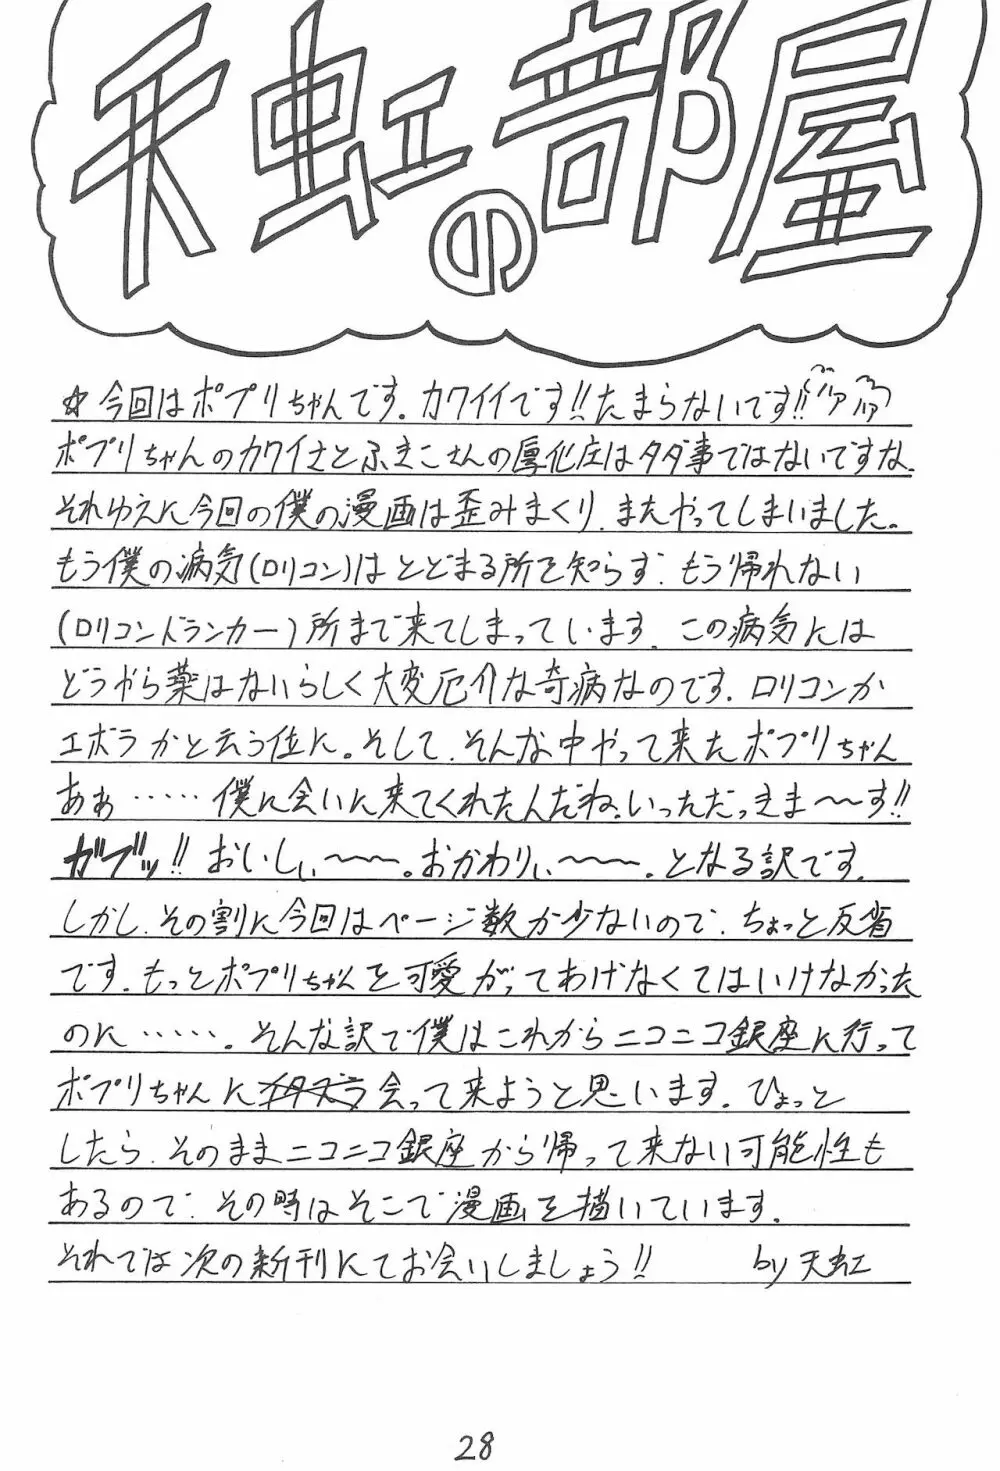 天虹の部屋
☆今回はポプリちゃんです。カワイイです!!たまらないです!!ハァハァ
ポプリちゃんのカワイさとふきこさんの厚化庄はタダ事ではないですな。
それゆえに今回の僕の漫画は歪みまくり、またやってしまいました。
もう僕の病気(ロリコン)はとどまる所を知らず、もう帰れない
(ロリコンドランカー)所まで来てしまっています。この病気には
どうやら薬はないらしく大変厄介な奇病なのです。ロリコンか
エボラかと云う位に。そして、そんな中やって来たポプリちゃん
あぁ……僕に会いに来てくれたんだね。いっただっきま〜〜す!!
ガブッ!!おいしぃ〜〜〜。おかわりぃ〜〜〜。となる訳です。
しかし、その割に今回はページ数が少ないので、ちょっと反省
です。もっとポプリちゃんを可愛がってあげなくてはいけなかった
のに……。そんな訳で僕はこれからニコニコ銀座に行って
ポプリちゃんに会って来ようと思います。ひょっと
したら、そのままニコニコ銀座から帰って来ない可能性も
あるので、その時はそこで漫画を描いています。
それでは次の新刊にてお会いしましょう!! by天虹
28